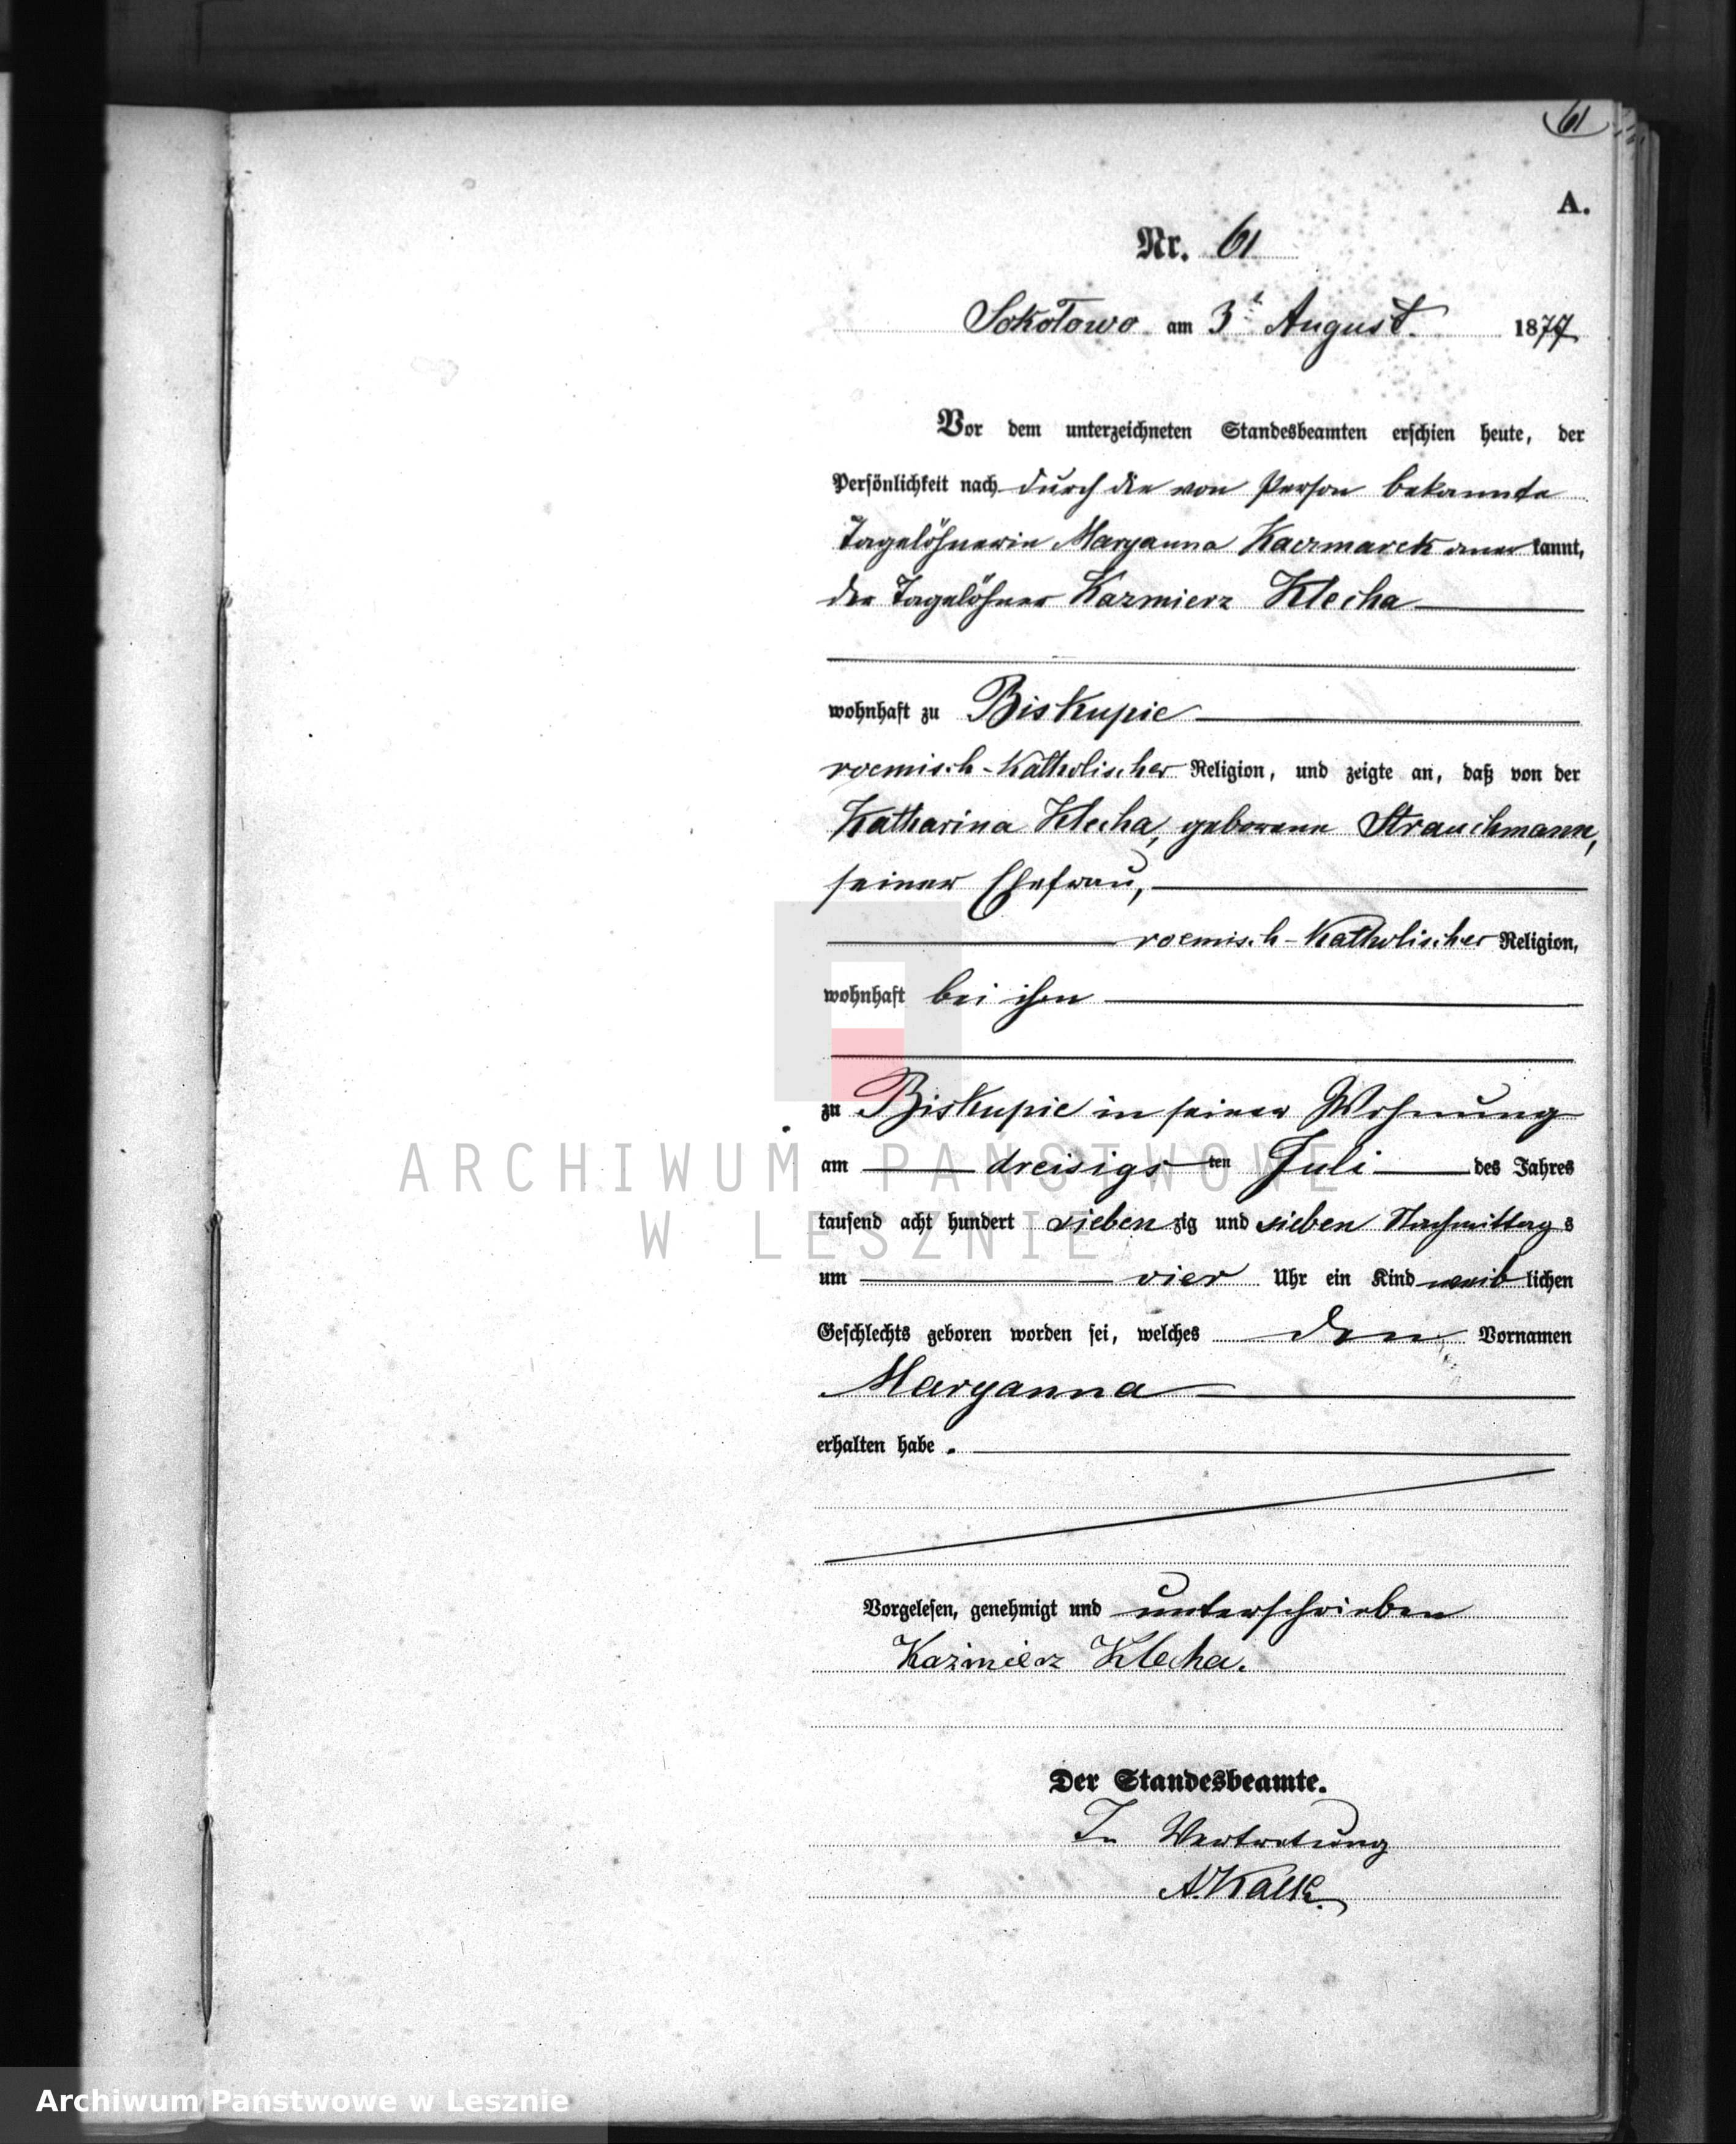 61
A.
Nr. 61
Sokołowo am 3t August. 1877
Vor dem unterzeichneten Standesbeamten erschien heute, der
Persönlichkeit nach durch die von Person bekannte
Tagelöhnerin Maryanna Kaczmarek anerkannt,
der Tagelöhner Kazmierz Klecha
wohnhaft zu Biskupie
roemisch-katholischer Religion, und zeigte an, daß von der
Katharina Klecha, geborene Strauchmann,
seiner Ehefrau,
roemisch-katholischer Religion,
wohnhaft bei ihm
zu Biskupie in seiner Wohnung
am dreisigsten Juli des Jahres
tausend acht hundert siebenzig und sieben Nachmittags
um vier Uhr ein Kind weiblichen
Geschlechts geboren worden sei, welches den Vornamen
Maryanna
erhalten habe.
Vorgelesen, genehmigt und unterschrieben
Kazimierz Klecha.
Der Standesbeamte.
In Vertretung
A. Kalk
ARCHIWUM PAŃSTWOWE
W LESZNIE
Archiwum Państwowe w Lesznie